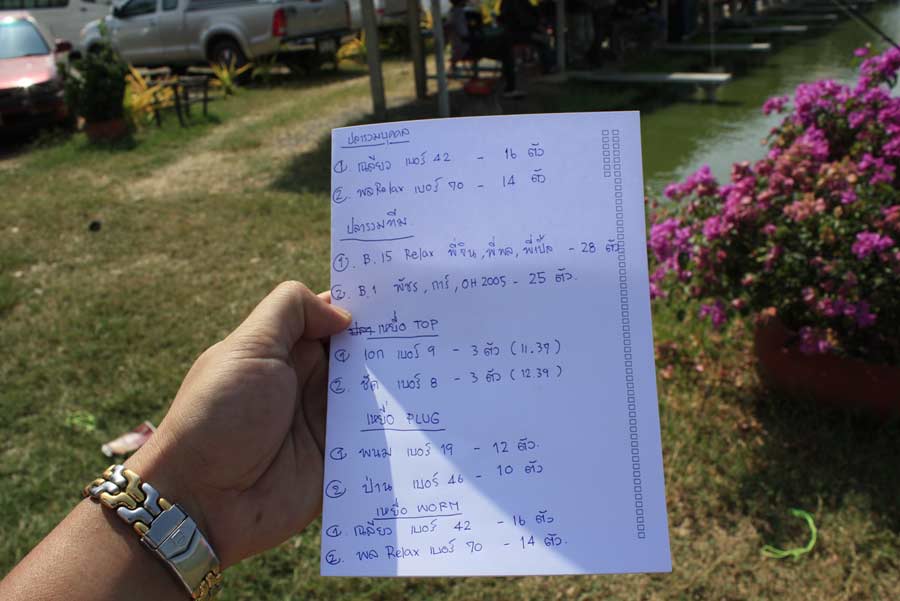 ปลารวมบุคคล
① เฉลียว เบอร์ 42 - 16 ตัว
② พลRelax เบอร์ 70 - 14 ตัว
ปลารวมทีม
①. B.15 Relax พี่จิน, พี่พล, พี่เปิ้ล - 28 ตัว
②. B.1 พัชร, การ์, OH2005 - 25 ตัว.
เหยื่อ TOP
① เอก เบอร์ 9 - 3 ตัว (11.37)
② ชัด เบอร์ 8 - 3 ตัว (12.39)
เหยื่อ PLUG
① พนม เบอร์ 19 - 12 ตัว.
② ป่าน เบอร์ 46 - 10 ตัว
เหยื่อ WORM
① เฉลียว เบอร์ 42 - 16 ตัว
②. พล Relax เบอร์ 70 - 14 ตัว.